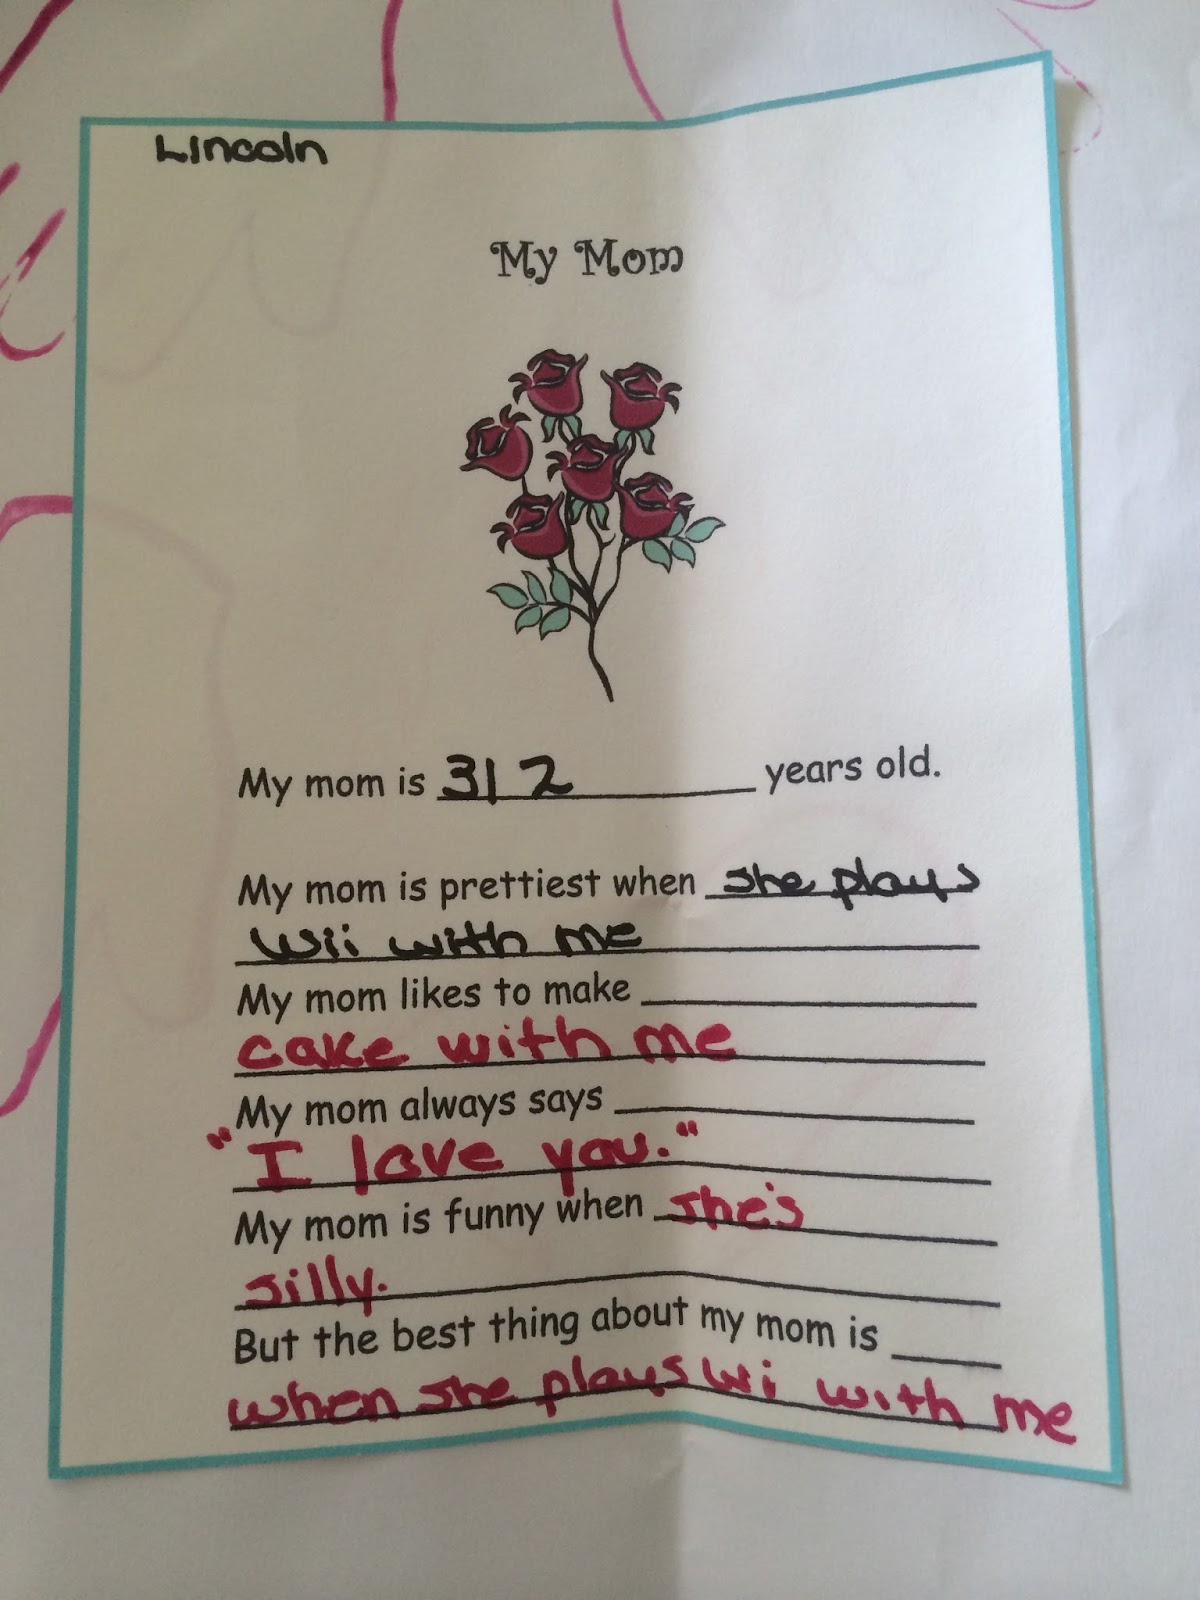 Lincoln
My Mom
My mom is 312 years old.
My mom is prettiest when she plays
wii with me
My mom likes to make
cake with me
My mom always says
"I love you."
My mom is funny when she's
silly.
But the best thing about my mom is
when she plays wi with me